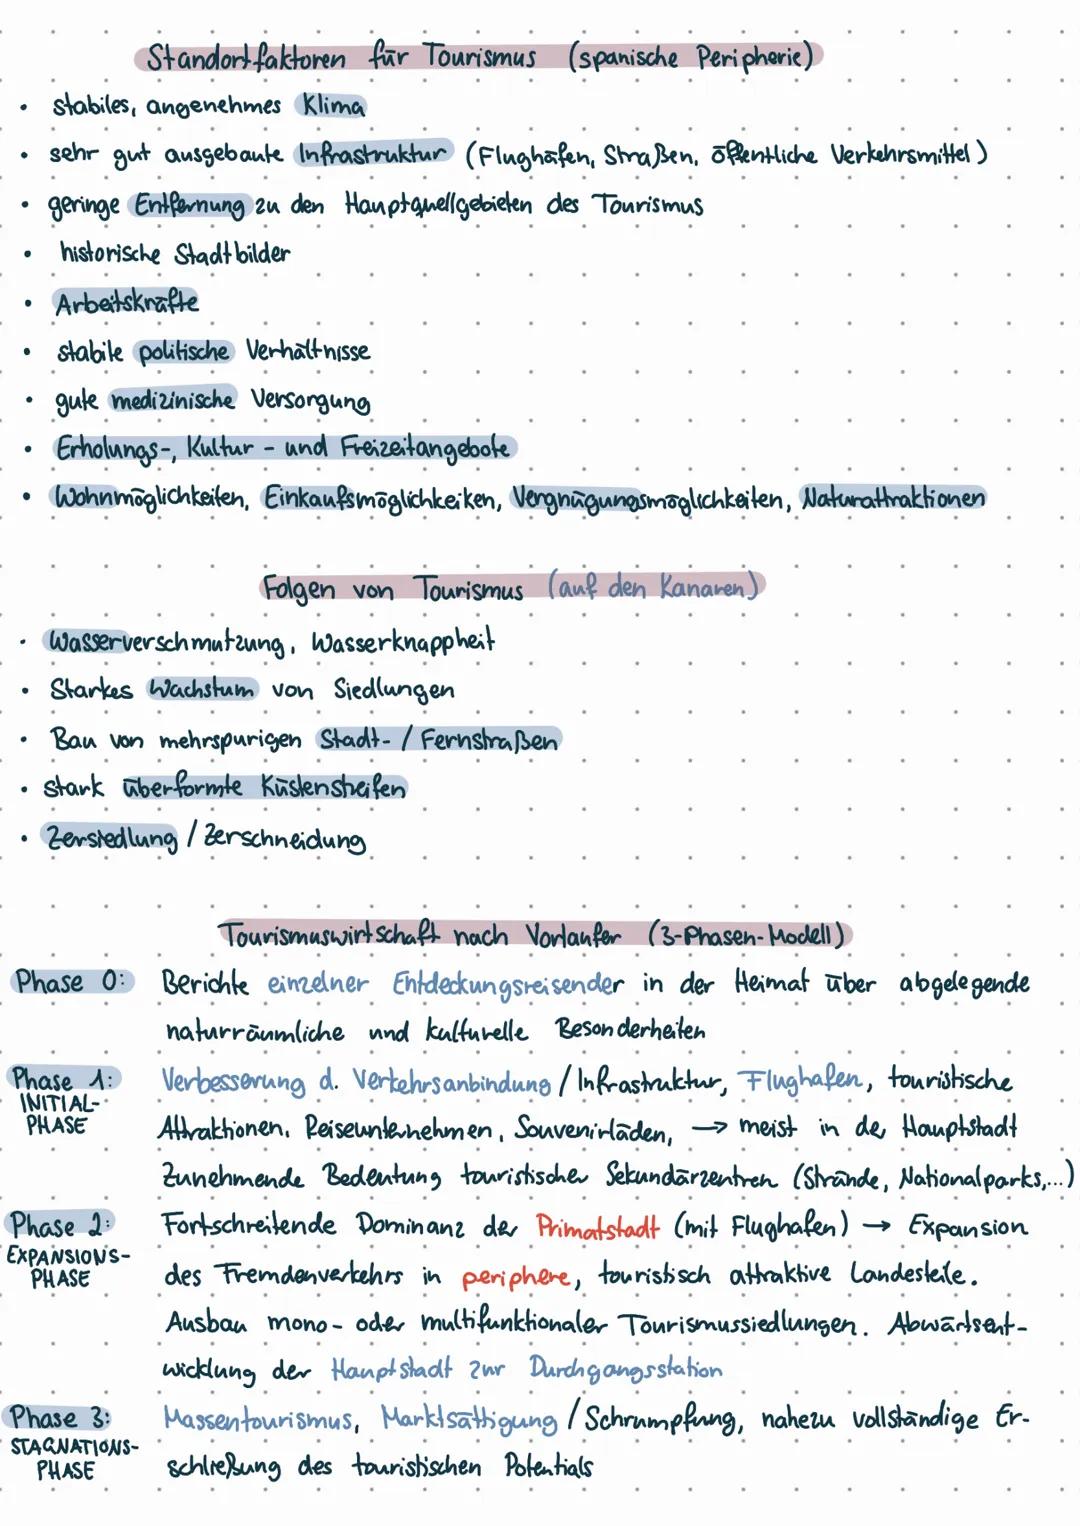 Standortfaktoren für Tourismus (spanische Peripherie)
• stabiles, angenehmes Klima
• sehr gut ausgebaute Infrastruktur (Flughäfen, Straßen, öffentliche Verkehrsmittel)
• geringe Entfernung zu den Hauptquellgebieten des Tourismus
• historische Stadtbilder
• Arbeitskräfte
• stabile politische Verhältnisse
• gute medizinische Versorgung
• Erholungs-, Kultur- und Freizeitangebote
• Wohnmöglichkeiten, Einkaufsmöglichkeiken, Vergnügungsmöglichkeiten, Naturattraktionen
Folgen von Tourismus (auf den Kanaren)
• Wasserverschmutzung, Wasserknappheit
• Starkes Wachstum von Siedlungen
• Bau von mehrspurigen Stadt- / Fernstraßen
• stark überformte Küstensteifen
• Zersiedlung / Zerschneidung
Tourismuswirtschaft nach Vorlaufer (3-Phasen-Modell)
Phase 0: Berichte einzelner Entdeckungsreisender in der Heimat über abgelegende
naturräumliche und kulturelle Besonderheiten
Phase 1: Verbesserung d. Verkehrsanbindung / Infrastruktur, Flughafen, touristische
INITIAL-
PHASE Attraktionen, Reiseunternehmen, Souvenirläden, → meist in der Hauptstadt
Zunehmende Bedeutung touristischer Sekundärzentren (Strände, Nationalparks,...)
Phase 2: Fortschreitende Dominanz der Primatstadt (mit Flughafen) → Expansion
EXPANSIONS-
PHASE des Fremdenverkehrs in periphere, touristisch attraktive Landesteile.
Ausbau mono- oder multifunktionaler Tourismussiedlungen. Abwärtsent-
wicklung der Hauptstadt zur Durchgangsstation
Phase 3: Massentourismus, Marktsättigung / Schrumpfung, nahezu vollständige Er-
STAGNATIONS-
PHASE schließung des touristischen Potentials